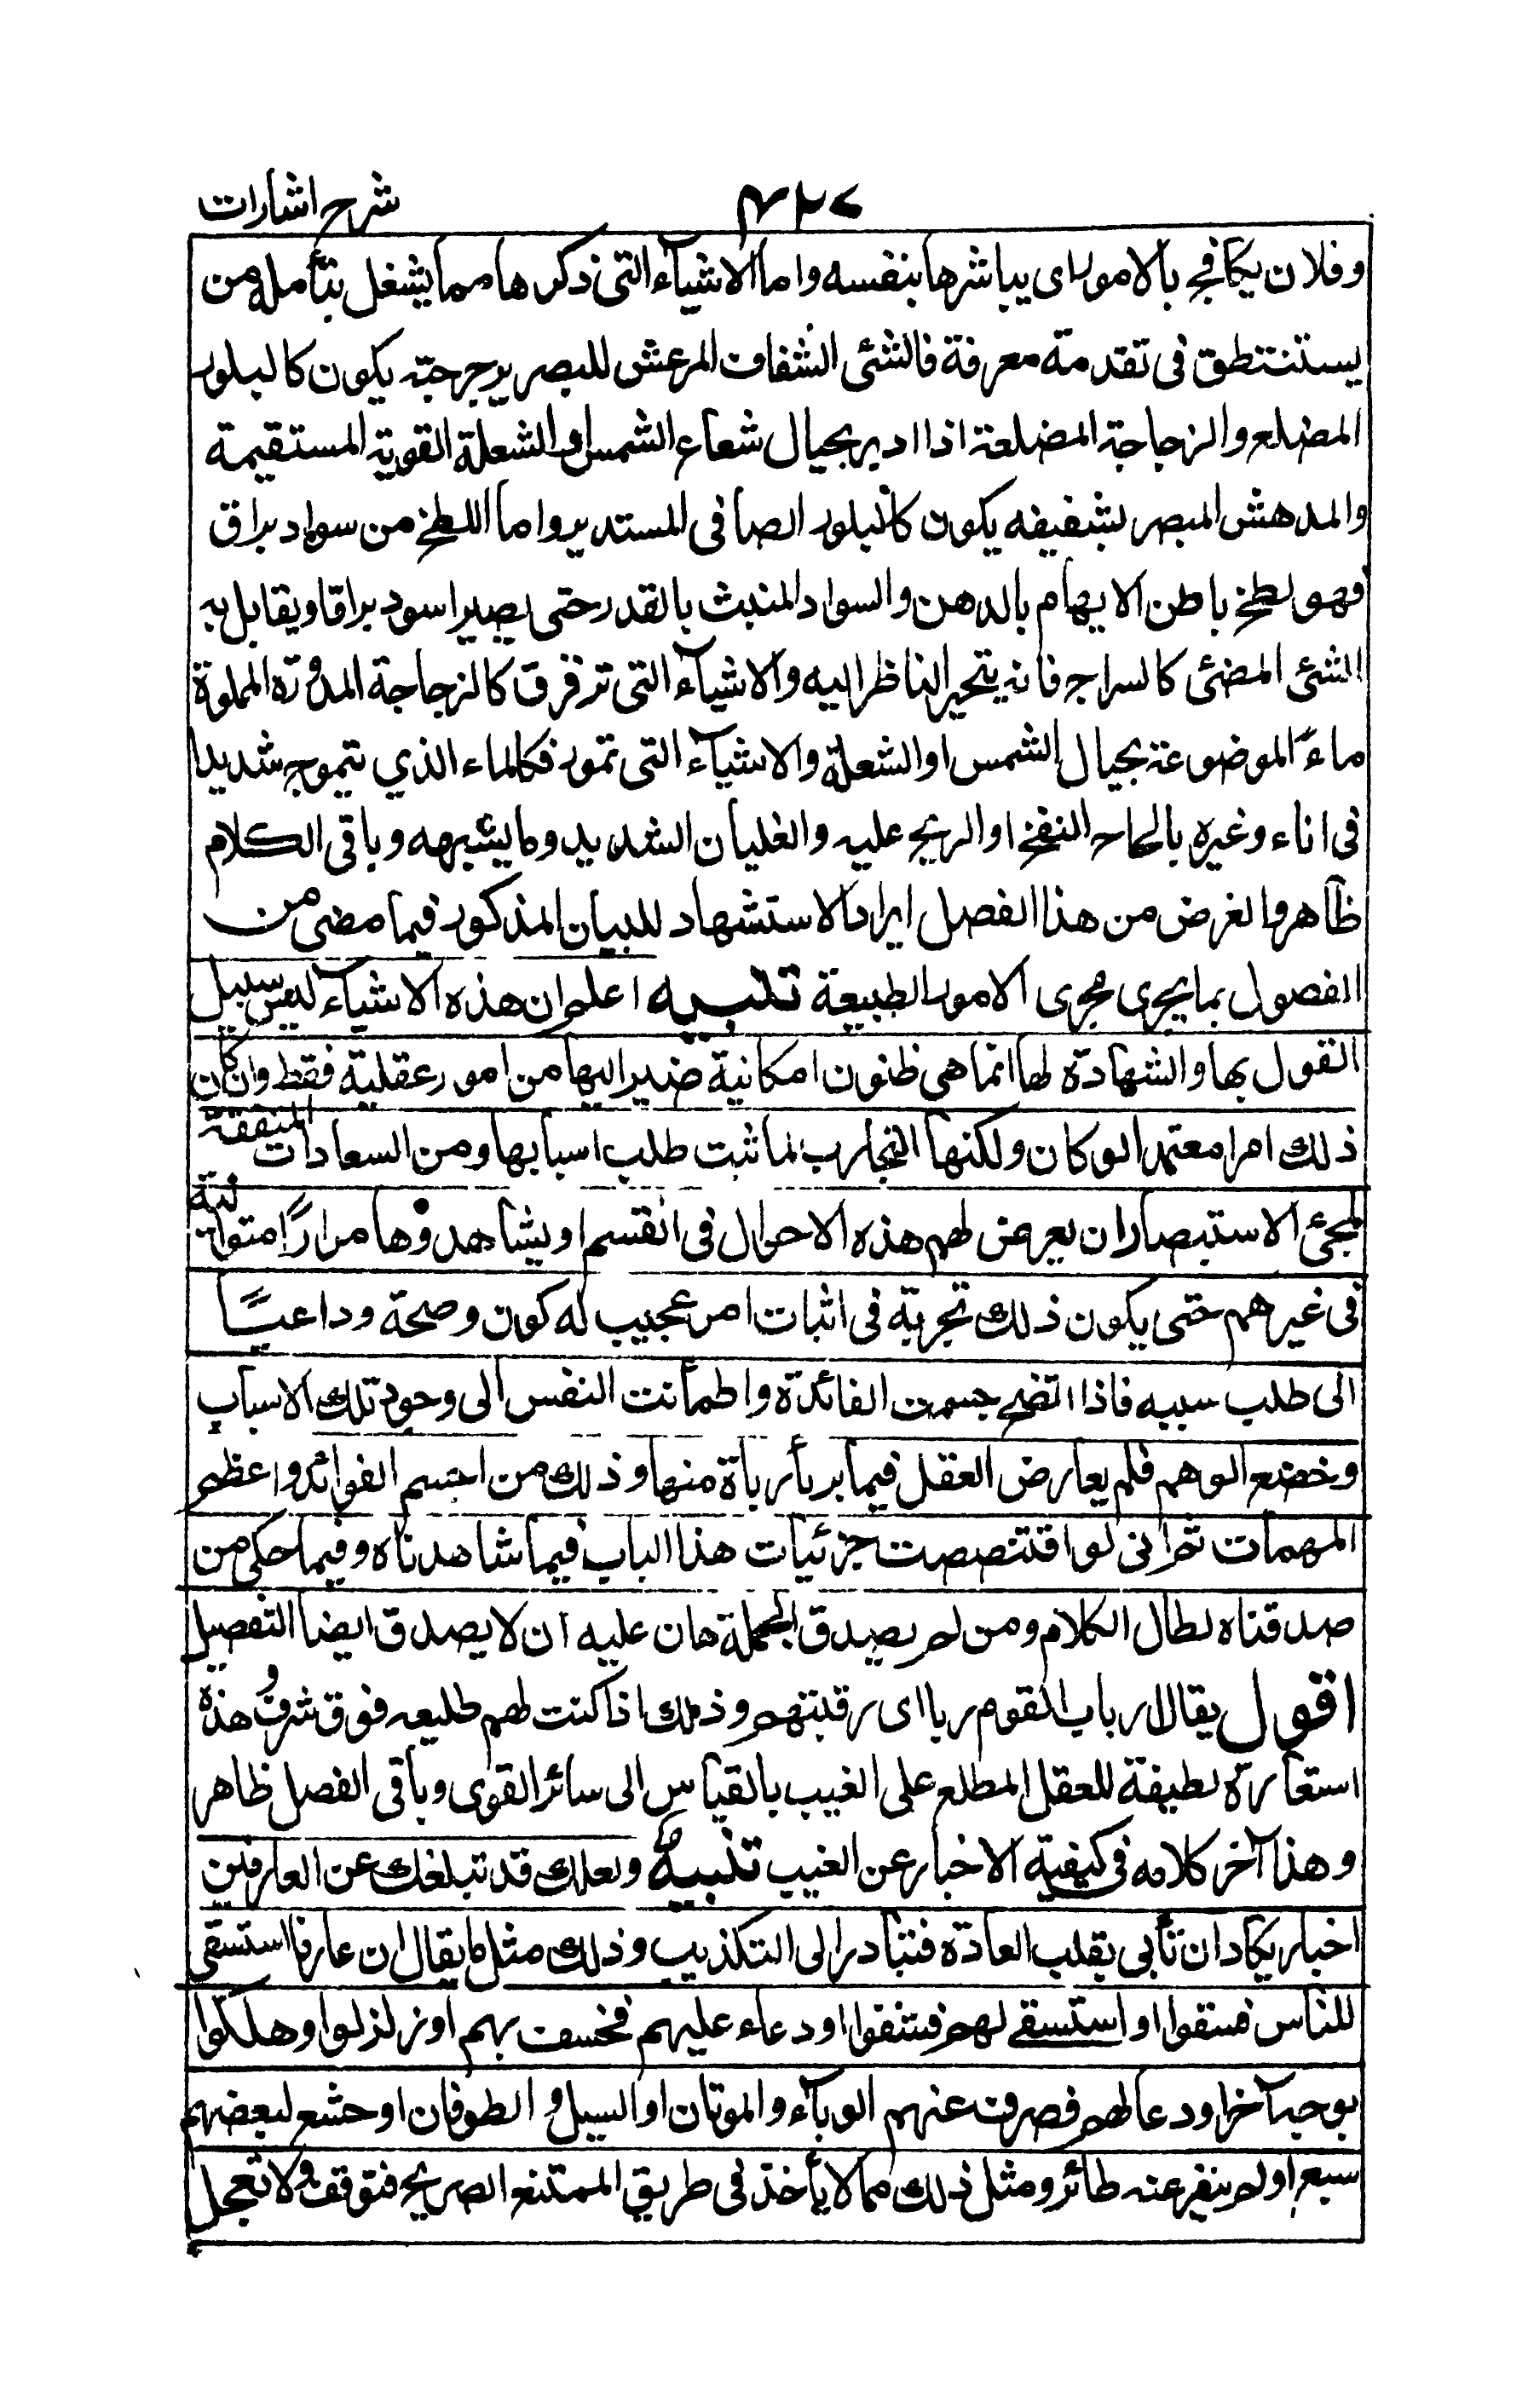 شرح اشارات
۴۲۷
وفلان يكافح بالامور اى يباشرها بنفسه واما الاشيآء التى ذكرها مما يشغل بتأمله من
يستنطق فى تقدمة معرفة فالشئ الشفاف المرعش للبصر برجرجته يكون كالبلور
المضلع والزجاجة المضلعة اذا ادير بحيال شعاع الشمس او الشعلة القوية المستقيمة
والمدهش المبصر بشفيفه يكون كالبلور الصافى المستدير واما اللطخ من سواد براق
فهو لطخ باطن الابهام بالدهن والسواد المنبث بالقدر حتى يصير اسود براقا ويقابل به
الشئ المضئ كالسراج فانه يتحير الناظر اليه والاشيآء التى ترقرق كالزجاجة المدورة المملوة
مآء الموضوعة بحيال الشمس او الشعلة والاشيآء التى تمور فكالماء الذي يتموج شديدا
فى اناء وغيره بالحاح النفخ او الريح عليه والغليان الشديد وما يشبهه وباقى الكلام
ظاهر والغرض من هذا الفصل ايراد الاستشهاد للبيان المذكور فيما مضى من
الفصول بما يجرى مجرى الامور الطبيعة تنبيه اعلم ان هذه الاشيآء ليس سبيل
القول بها والشهادة لها انما هى ظنون امكانية ضير اليها من امور عقلية فقط وان كان
ذلك امرا معتمدا لو كان ولكنها التجارب لما ثبت طلب اسبابها ومن السعادات المتفقة
لمحبى الاستبصار ان يعرض لهم هذه الاحوال فى انفسهم او يشاهدوها مرارًا متوالية
فى غيرهم حتى يكون ذلك تجربة فى اثبات امر عجيب له كون وصحة وداعيًا
الى طلب سببه فاذا اتضح جسمت الفائدة واطمأنت النفس الى وجود تلك الاسباب
وخضع الوهم فلم يعارض العقل فيما يربأ رباة منها وذلك من اجسم الفوائد واعظم
المهمات ثم انى لو اقتصصت جزئيات هذا الباب فيما شاهدناه وفيما حكى من
صدقناه لطال الكلام ومن لم يصدق الجملة هان عليه ان لا يصدق ايضا التفصيل
اقول يقال ارباب القوم ربا اى رقبتهم وذلك اذا كنت لهم طليعه فوق شرف وهذه
استعارة لطيفة للعقل المطلع على الغيب بالقياس الى سائر القوى وباقى الفصل ظاهر
وهذا آخر كلامه فى كيفية الاخبار عن الغيب تنبيهٌ ولعلك قد تبلغك عن العارفين
اخبار يكاد ان تأبى بقلب العادة فتبادر الى التكذيب وذلك مثل ما يقال ان عارفا استسقى
للناس فسقوا او استسقے لهم فشفوا او دعاء عليهم فخسفت بهم او زلزلوا وهلكوا
بوجه آخر او دعا لهم فصرفت عنهم الوبآء والموتان او السيل و الطوفان او خشع لبعضهم
سبع او لم ينفر عنه طائر ومثل ذلك مما لا يأخذ فى طريق الممتنع الصريح فتوقف ولا تعجل